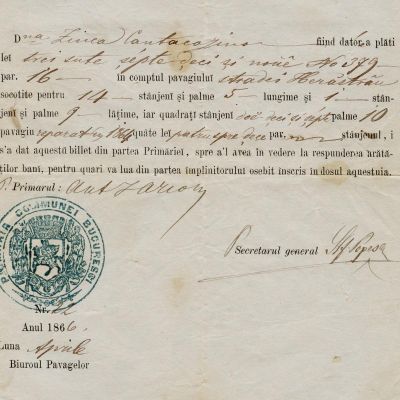 Dna Zinca Cantacozino fiind datóre a plăti
lei trei sute septe-deci și nouĕ No 379
par. 16 în comptul pavagiului stradei Herăstrău
socotite pentru 14 stânjeni și palme 5 lungime și 1 stân-
jeni și palme 9 lățime, iar quadrați stânjeni doĕ-deci și șépte palme 10
pavagiu reparat in 1864 quăte lei patru-spre-dece par, stânjenul, i
s'a dat aquestŭ billet din partea Primăriei, spre a'l avea în vedere la respunderea arăta-
ților bani, pentru quari va lua din partea împlinitorului osebit inscris în dosul aquestuia.
P. Primarul: Ant Zarion
Secretarul general Șt. Popescu
PRIMĂRIA COMUNEI BUCURESCI
Nr. 22
Anul 1866
Luna Aprile
Biuroul Pavagelor